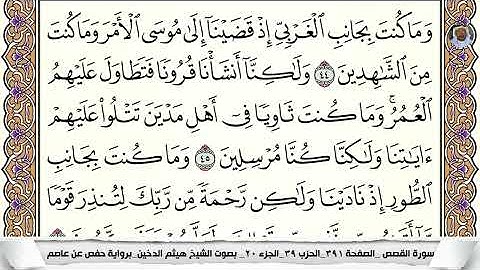 وَمَا كُنتَ بِجَانِبِ ٱلْغَرْبِيِّ إِذْ قَضَيْنَآ إِلَىٰ مُوسَى ٱلْأَمْرَ وَمَا كُنتَ
مِنَ ٱلشَّـٰهِدِينَ ٤٤ وَلَـٰكِنَّآ أَنشَأْنَا قُرُونًا فَتَطَاوَلَ عَلَيْهِمُ
ٱلْعُمُرُ ۚ وَمَا كُنتَ ثَاوِيًا فِىٓ أَهْلِ مَدْيَنَ تَتْلُوا۟ عَلَيْهِمْ
ءَايَـٰتِنَا وَلَـٰكِنَّا كُنَّا مُرْسِلِينَ ٤٥ وَمَا كُنتَ بِجَانِبِ
ٱلطُّورِ إِذْ نَادَيْنَا وَلَـٰكِن رَّحْمَةً مِّن رَّبِّكَ لِتُنذِرَ قَوْمًا
سورة القصص _الصفحة ٣٩١_الحزب ٣٩_الجزء ٢٠_ بصوت الشيخ هيثم الدخين_برواية حفص عن عاصم